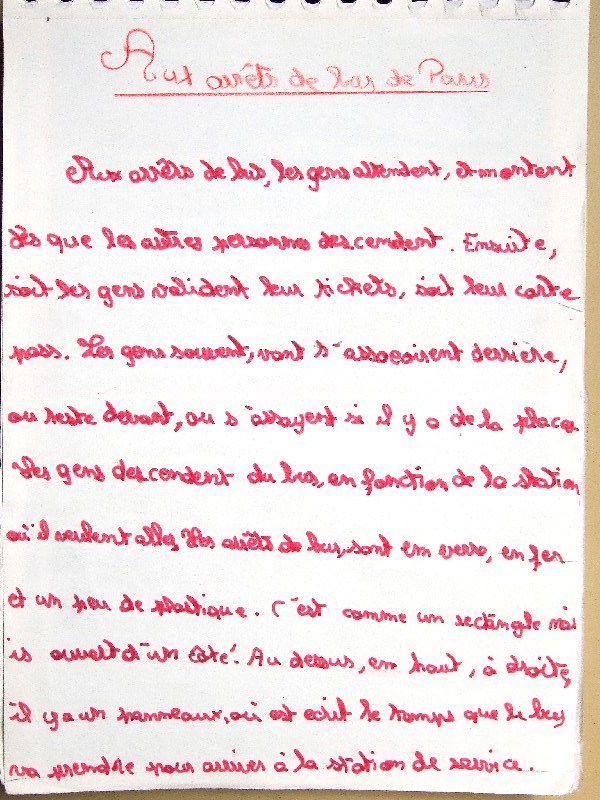 Aux arrêts de bus de Paris
Aux arrêts de bus, les gens attendent, et montent
dès que les autres personnes descendent. Ensuite,
soit les gens valident leur tickets, soit leur carte
pass. Les gens souvent, vont s'assoçoirent derrière,
ou reste devant, ou s'assayent si il y a de la place
Les gens descendent du bus, en fonction de la station
où il veulent aller, Les arrêts de bus, sont em verre, en fer
et un peu de plastique. C'est comme un rectangle mai
is ouvert d'un côté. Au dessus, en haut, à droite,
il y a un panneaux, où est ecrit le temps que le bus
va prendre pour arriver à la station de service.